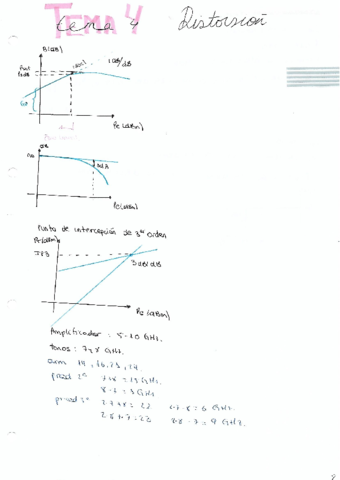 TEMA 4
tema 4 Distorsión
1 dB/dB
Pe (dBm)
Pe (dBm)
Punto de intercepción de 3er orden
IP3
3 dB/dB
Pe (dBm)
Amplificador: 5-10 GHz.
tonos: 7 y 8 GHz.
arm 14, 16, 21, 24.
prod 2º 7+8 = 15 GHz.
8-7 = 1 GHz
prod 3º 2·7+8 = 22 2·7-8 = 6 GHz.
2·8+7 = 22 2·8-7 = 9 GHz.